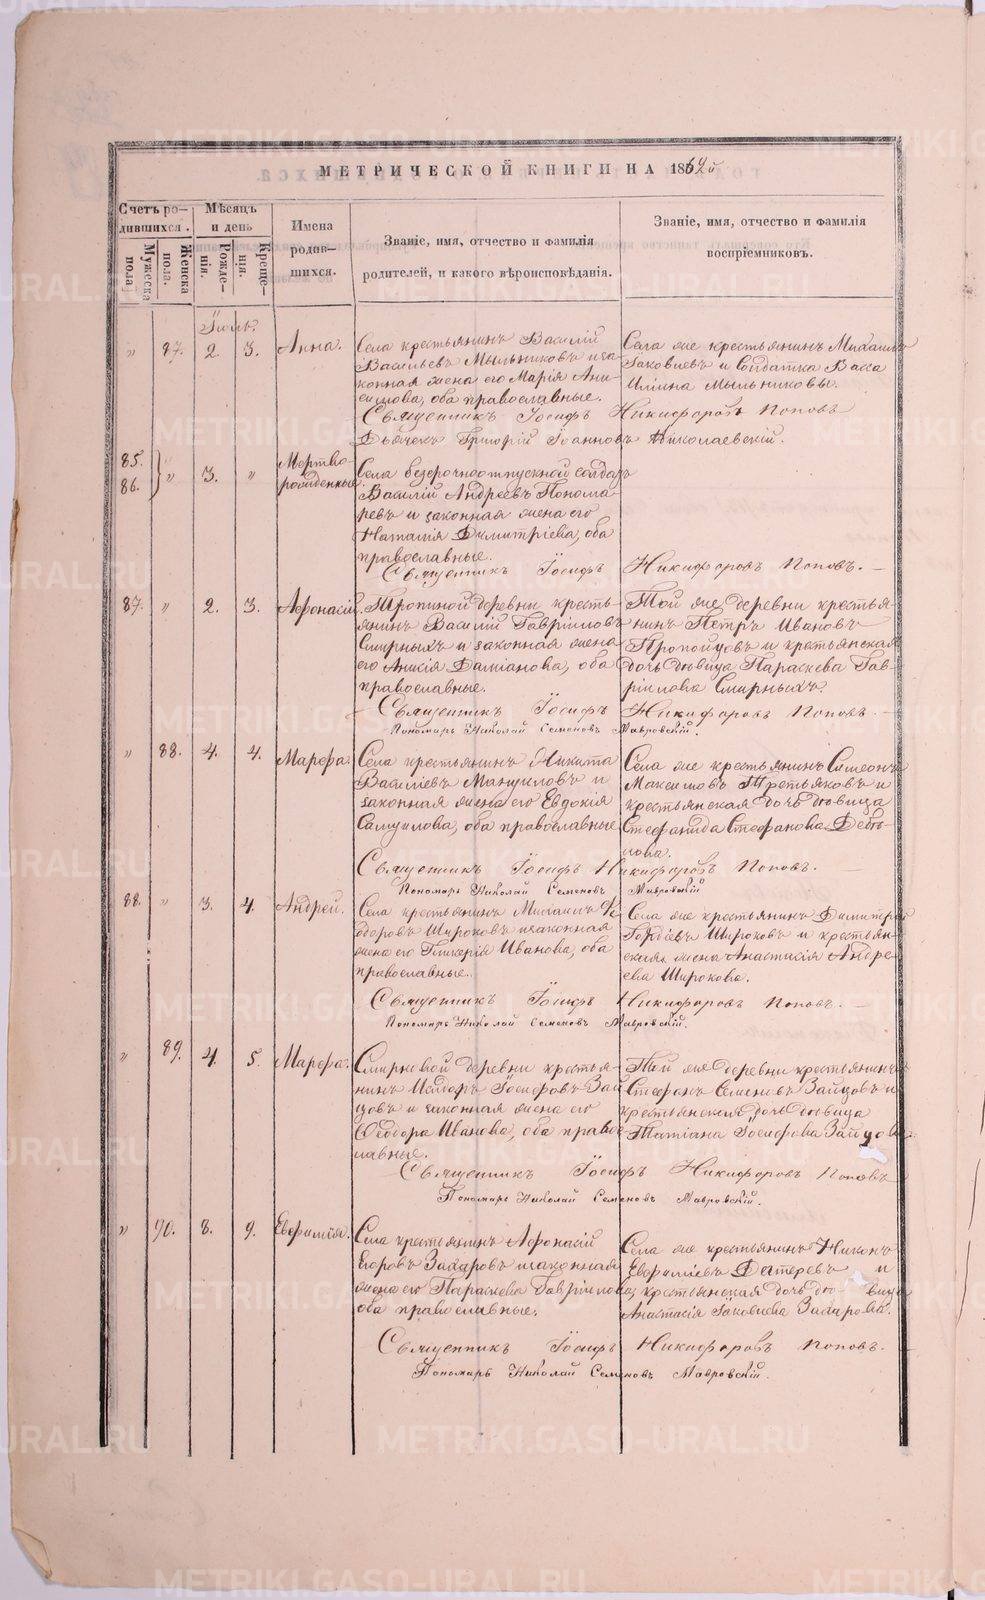 МЕТРИЧЕСКОЙ КНИГИ НА 1862й
Счетъ ро-
дившихся.
Мужеска пола.
Женска пола.
Мѣсяцъ
и день
Рожде-
нія.
Креще-
нія.
Имена
родив-
шихся.
Званіе, имя, отчество и фамилія
родителей, и какого вѣроисповѣданія.
Званіе, имя, отчество и фамилія
воспріемниковъ.
Іюль.
" 87. 2. 3. Анна.
Села крестьянинъ Василій
Васильевъ Мыльниковъ и за
конная жена его Марія Ани
симова, оба православные.
Села же крестьянинъ Михаилъ
Іаковлевъ и Солдатка Васса
Мыльниковы.
Священникъ Іосифъ Никифоровъ Поповъ
Дьячекъ Григорій Іоанновъ Николаевскій.
85.
86. " 3. "
Мертво
рожденные
Села безсрочноотпускной солдатъ
Василій Андреевъ Понома-
ревъ и законная жена его
Наталія Димитріева, оба
православные.
Священникъ Іосифъ Никифоровъ Поповъ.
87. " 2. 3. Афонасій.
Тропиной деревни кресть-
янинъ Василій Гавріиловъ
Смирныхъ и законная жена
его Анисія Даміанова, оба
православные.
Той же деревни крестья-
нинъ Петръ Ивановъ
и крестьянская
дочь дѣвица Параскева Гав-
ріилова Смирныхъ.
Священникъ Іосифъ Никифоровъ Поповъ.
Пономарь Николай Семеновъ Мавровскій.
" 88. 4. 4. Марѳа.
Села крестьянинъ Никита
Василіевъ Мануиловъ и
законная жена его Евдокія
Самуилова, оба православные
Села же крестьянинъ Симеонъ
Максимовъ Третьяковъ и
крестьянская дочь дѣвица
Стефанида Стефанова
Священникъ Іосифъ Никифоровъ Поповъ.
Пономарь Николай Семеновъ Мавровскій
88. " 3. 4. Андрей.
Села крестьянинъ Михаилъ Ѳе
одоровъ Широковъ и законная
жена его Гликерія Иванова, оба
православные.
Села же крестьянинъ Димитрій
Гордіевъ Широковъ и крестьян-
ская жена Анастасія Андре-
ева Широкова.
Священникъ Іосифъ Никифоровъ Поповъ.
Пономарь Николай Семеновъ Мавровскій.
" 89. 4. 5. Марѳа.
деревни крестья-
нинъ Исидоръ Іосифовъ Зай
цовъ и законная жена его
Ѳеодора Иванова, оба право
славные.
Той же деревни крестьянинъ
Стефанъ Семеновъ Зайцовъ и
крестьянская дочь дѣвица
Татіана Іосифова Зайцова.
Священникъ Іосифъ Никифоровъ Поповъ
Пономарь Николай Семеновъ Мавровскій.
" 90. 8. 9. Евфимія.
Села крестьянинъ Афонасій
Егоровъ Захаровъ и законная
жена его Параскева Гавріилова,
оба православные.
Села же крестьянинъ Никонъ
Евфиміевъ Дегтеревъ и
крестьянская дочь дѣ вица
Анастасія Іаковлева Захарова.
Священникъ Іосифъ Никифоровъ Поповъ.
Пономарь Николай Семеновъ Мавровскій.
METRIKI.GASO-URAL.RU